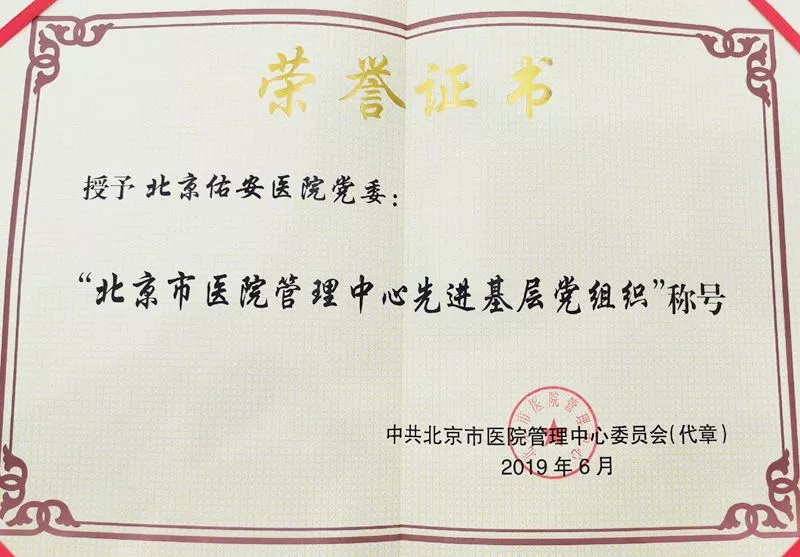 荣誉证书
授予 北京佑安医院党委：
“北京市医院管理中心先进基层党组织”称号
北京市医院管理中心
中共北京市医院管理中心委员会(代章)
2019年6月